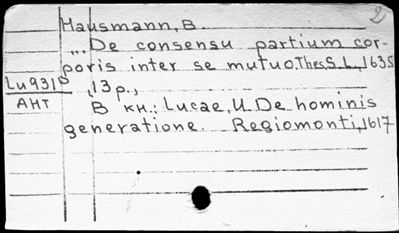 2
Hausmann, B.
,,, De consensu partium cor-
poris inter se mutuo, Thes. S. L., 1635
Lu931 , 13 p.,
АНТ В кн.: Lucae, U. De hominis
generatione. Regiomonti, 1617